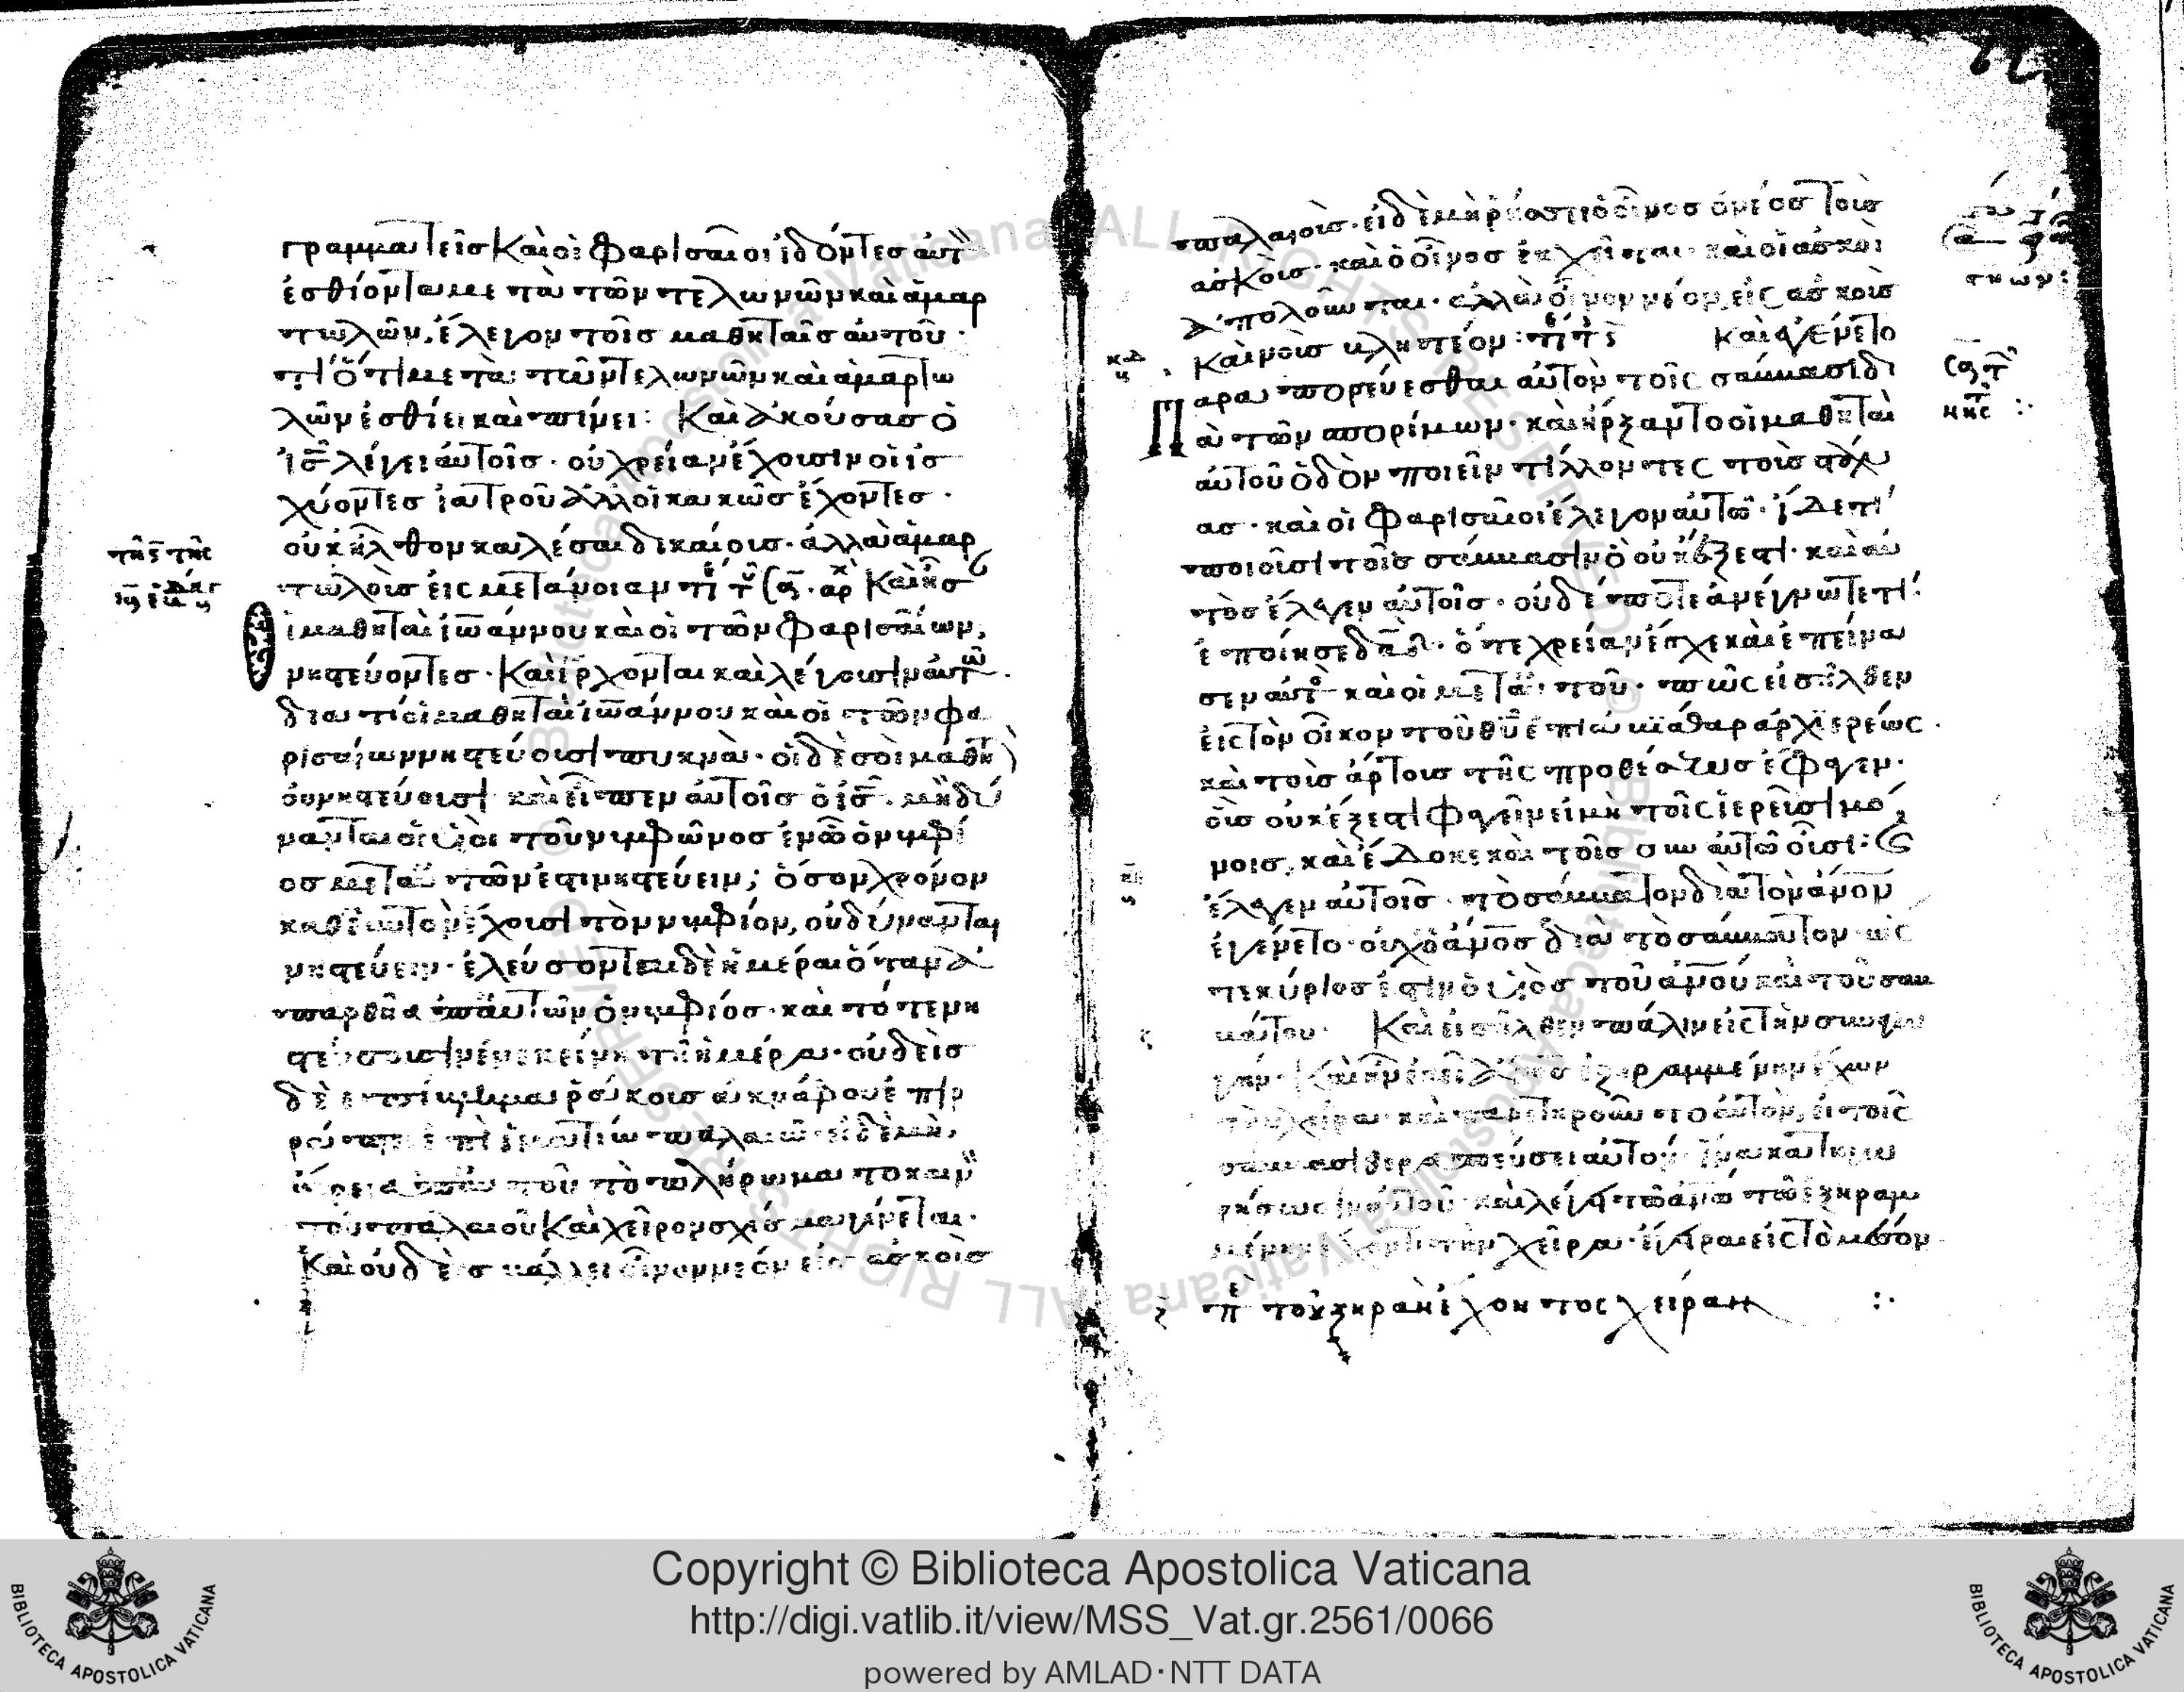 γραμματεῖς καὶ οἱ φαρισαῖοι ἰδόντες αὐτὸν
ἐσθίοντα μετὰ τῶν τελωνῶν καὶ ἁμαρ
τωλῶν, ἔλεγον τοῖς μαθηταῖς αὐτοῦ·
τί ὅτι μετὰ τῶν τελωνῶν καὶ ἁμαρτω
λῶν ἐσθίει καὶ πίνει: Καὶ ἀκούσας ὁ
ἰς λέγει αὐτοῖς· οὐ χρείαν ἔχουσιν οἱ ἰσ
χύοντες ἰατροῦ ἀλλ οἱ κακῶς ἔχοντες·
οὐκ ἦλθον καλέσαι δικαίους· ἀλλὰ ἁμαρ
τωλοὺς εἰς μετάνοιαν
μαθηταὶ ἰωάννου καὶ οἱ τῶν φαρισαίων,
νηστεύοντες· Καὶ ἔρχονται καὶ λέγουσιν αὐτῶ·
διατί οἱ μαθηταὶ ἰωάννου καὶ οἱ τῶν φα
ρισαίων νηστεύουσι πυκνὰ· οἱ δὲ σοὶ μαθηταὶ
οὐ νηστεύουσι καὶ εἶπεν αὐτοῖς ὁ ἰς· μὴ δύ
νανται οἱ υἱοι τοῦ νυμφῶνος ἐν ῶ ὁ νυμφί
ος μετ αὐτῶν ἐστι νηστεύειν; ὅσον χρόνον
μεθ ἑαυτῶν ἔχουσι τὸν νυμφίον, οὐ δύνανται
νηστεύειν· ἐλεύσονται δὲ ἡμέραι ὅταν ἀ
παρθῆ ἀπ αὐτῶν ὁ νυμφίος· καὶ τότε νη
στεύσουσιν ἐν ἐκείνη τῆ ἡμέρα· οὐδεὶς
πὶ ἱματίω παλαιῶ· εἰ δὲ μὴ,
αἴρει τὸ πλήρωμα το καινὸν
τοῦ παλαιοῦ Καὶ χεῖρον σχίσμα γίνεται·
Καὶ οὐδεὶς βάλλει οἶνον νέον εἰς ἀσκοὺς
παλαιοὺς· εἰ δὲ μὴ ῥήσσει ὁ οἶνος ὁ νέος τοὺς
ἀσκοὺς· καὶ ὁ οἶνος ἐκχεῖται· καὶ οἱ ἀσκοὶ
ἀπολοῦνται· ἀλλὰ οἶνον νέον εἰς ἀσκοὺς
καινοὺς βλητέον: Καὶ ἐγένετο
παραπορεύεσθαι αὐτὸν τοῖς σάββασι δι
ὰ τῶν σπορίμων· καὶ ἤρξαντο οἱ μαθηταὶ
αὐτοῦ ὁδὸν ποιεῖν τίλλοντες τοὺς στάχυ
ας· καὶ οἱ φαρισαῖοι ἔλεγον αὐτῶ· ἴδε τί
ποιοῦσι τοῖς σάββασιν ὃ οὐκ ἔξεστι· καὶ αὐ
τὸς ἔλεγεν αὐτοῖς· οὐδέποτε ἀνέγνωτε τί
ἐποίησε δαδ· ὅτε χρείαν ἔσχε καὶ ἐπείνα
σεν αὐτὸς καὶ οἱ μετ αὐτοῦ· πῶς εἰσῆλθεν
εἰς τὸν οἶκον τοῦ θυ ἐπὶ ἀβιάθαρ ἀρχιερέως·
καὶ τοὺς ἄρτους τῆς προθέσεως ἔφαγεν·
οὓς οὐκ ἔξεστι φαγεῖν εἰ μὴ τοῖς ἱερεῦσι μό
νοις, καὶ ἔδωκε καὶ τοῖς σὺν αὐτῶ οὖσι:
ἔλεγεν αὐτοῖς· τὸ σάββατον διὰ τὸν ἄνον
ἐγένετο· οὐχ ὁ ἄνος διὰ τὸ σάββατον· ὥς
τε κύριος ἐστιν ὁ υἱὸς τοῦ ἀνου καὶ τοῦ σαβ
βάτου· Καὶ εἰσῆλθεν πάλιν εἰς τὴν συναγω
γήν· Καὶ ἦν ἐκεῖ ἄνος ἐξηραμμένην ἔχων
τὴν χεῖρα· καὶ παρετηροῦντο αὐτὸν, εἰ τοῖς
σάββασι θεραπεύσει αὐτόν· ἵνα κατηγο
ρήσωσιν αὐτοῦ· καὶ λέγει τῶ ἀνω τῶ ἐξηραμ
μένην ἔχοντι τὴν χεῖρα· ἔγειραι εἰς τὸ μέσον